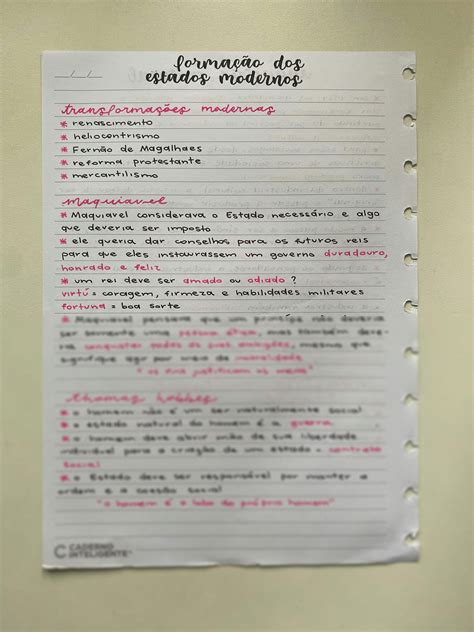 formação dos
estados modernos
transformações modernas
* renascimento
* heliocentrismo
* Fernão de Magalhaes
* reforma protestante
* mercantilismo
maquiavel
* Maquiavel considerava o Estado necessário e algo
que deveria ser imposto
* ele queria dar conselhos para os futuros reis
para que eles instaurassem um governo duradouro,
honrado e feliz
* um rei deve ser amado ou odiado ?
virtú = coragem, firmeza e habilidades militares
fortuna = boa sorte
* Maquiavel pensava que um príncipe não deveria
ser somente uma pessoa ética, mas também
conquistar todas as suas ambições, mesmo que
signifique agir por meio da
" os fins justificam os meios"
thomas hobbes
* o homem não é um ser naturalmente social
* o estado natural do homem é a guerra
* o homem deve abrir mão de sua liberdade
individual para a criação de um estado = contrato
social
* o Estado deve ser responsável por manter a
ordem e a coesão social
"o homem é o lobo do próprio homem"
CADERNO
INTELIGENTE